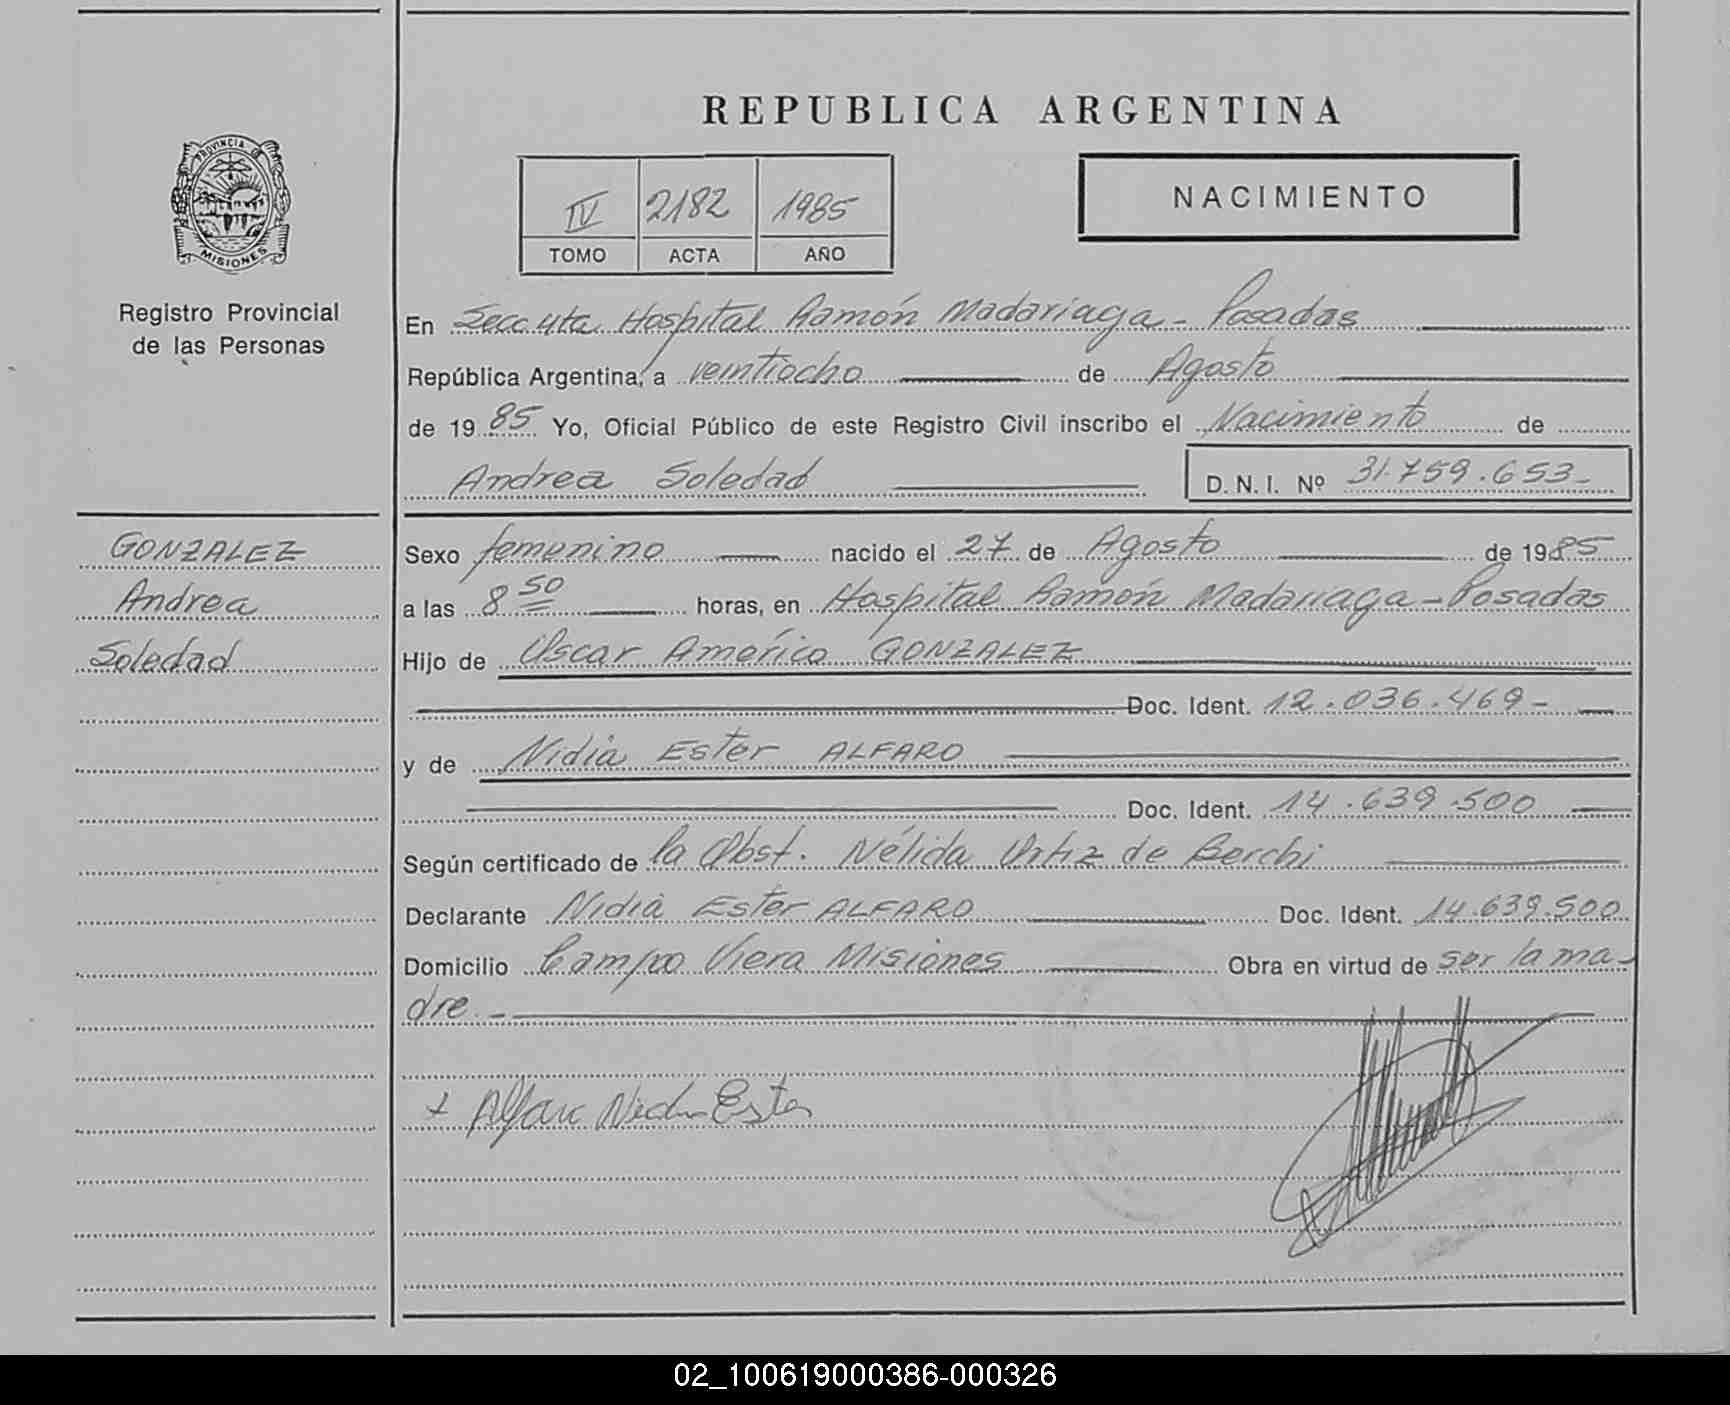 REPUBLICA ARGENTINA
PROVINCIA DE
MISIONES
Registro Provincial
de las Personas
IV 2182 1985
TOMO ACTA AÑO
NACIMIENTO
En Secc. 4ta. Hospital Ramón Madariaga - Posadas
República Argentina, a veintiocho de Agosto
de 1985 Yo, Oficial Público de este Registro Civil inscribo el Nacimiento de
Andrea Soledad D.N.I. Nº 31.759.653-
GONZALEZ
Andrea
Soledad
Sexo femenino nacido el 27 de Agosto de 1985
a las 8 50 horas, en Hospital Ramón Madariaga - Posadas
Hijo de Oscar Américo GONZALEZ
Doc. Ident. 12.036.469-
y de Nidia Ester ALFARO
Doc. Ident. 14.639.500
Según certificado de la Obst. Nélida Ortiz de Berchi
Declarante Nidia Ester ALFARO Doc. Ident. 14.639.500
Domicilio Campo Viera Misiones Obra en virtud de ser la ma-
dre.-
Alfaro Nidia Ester
02_100619000386-000326